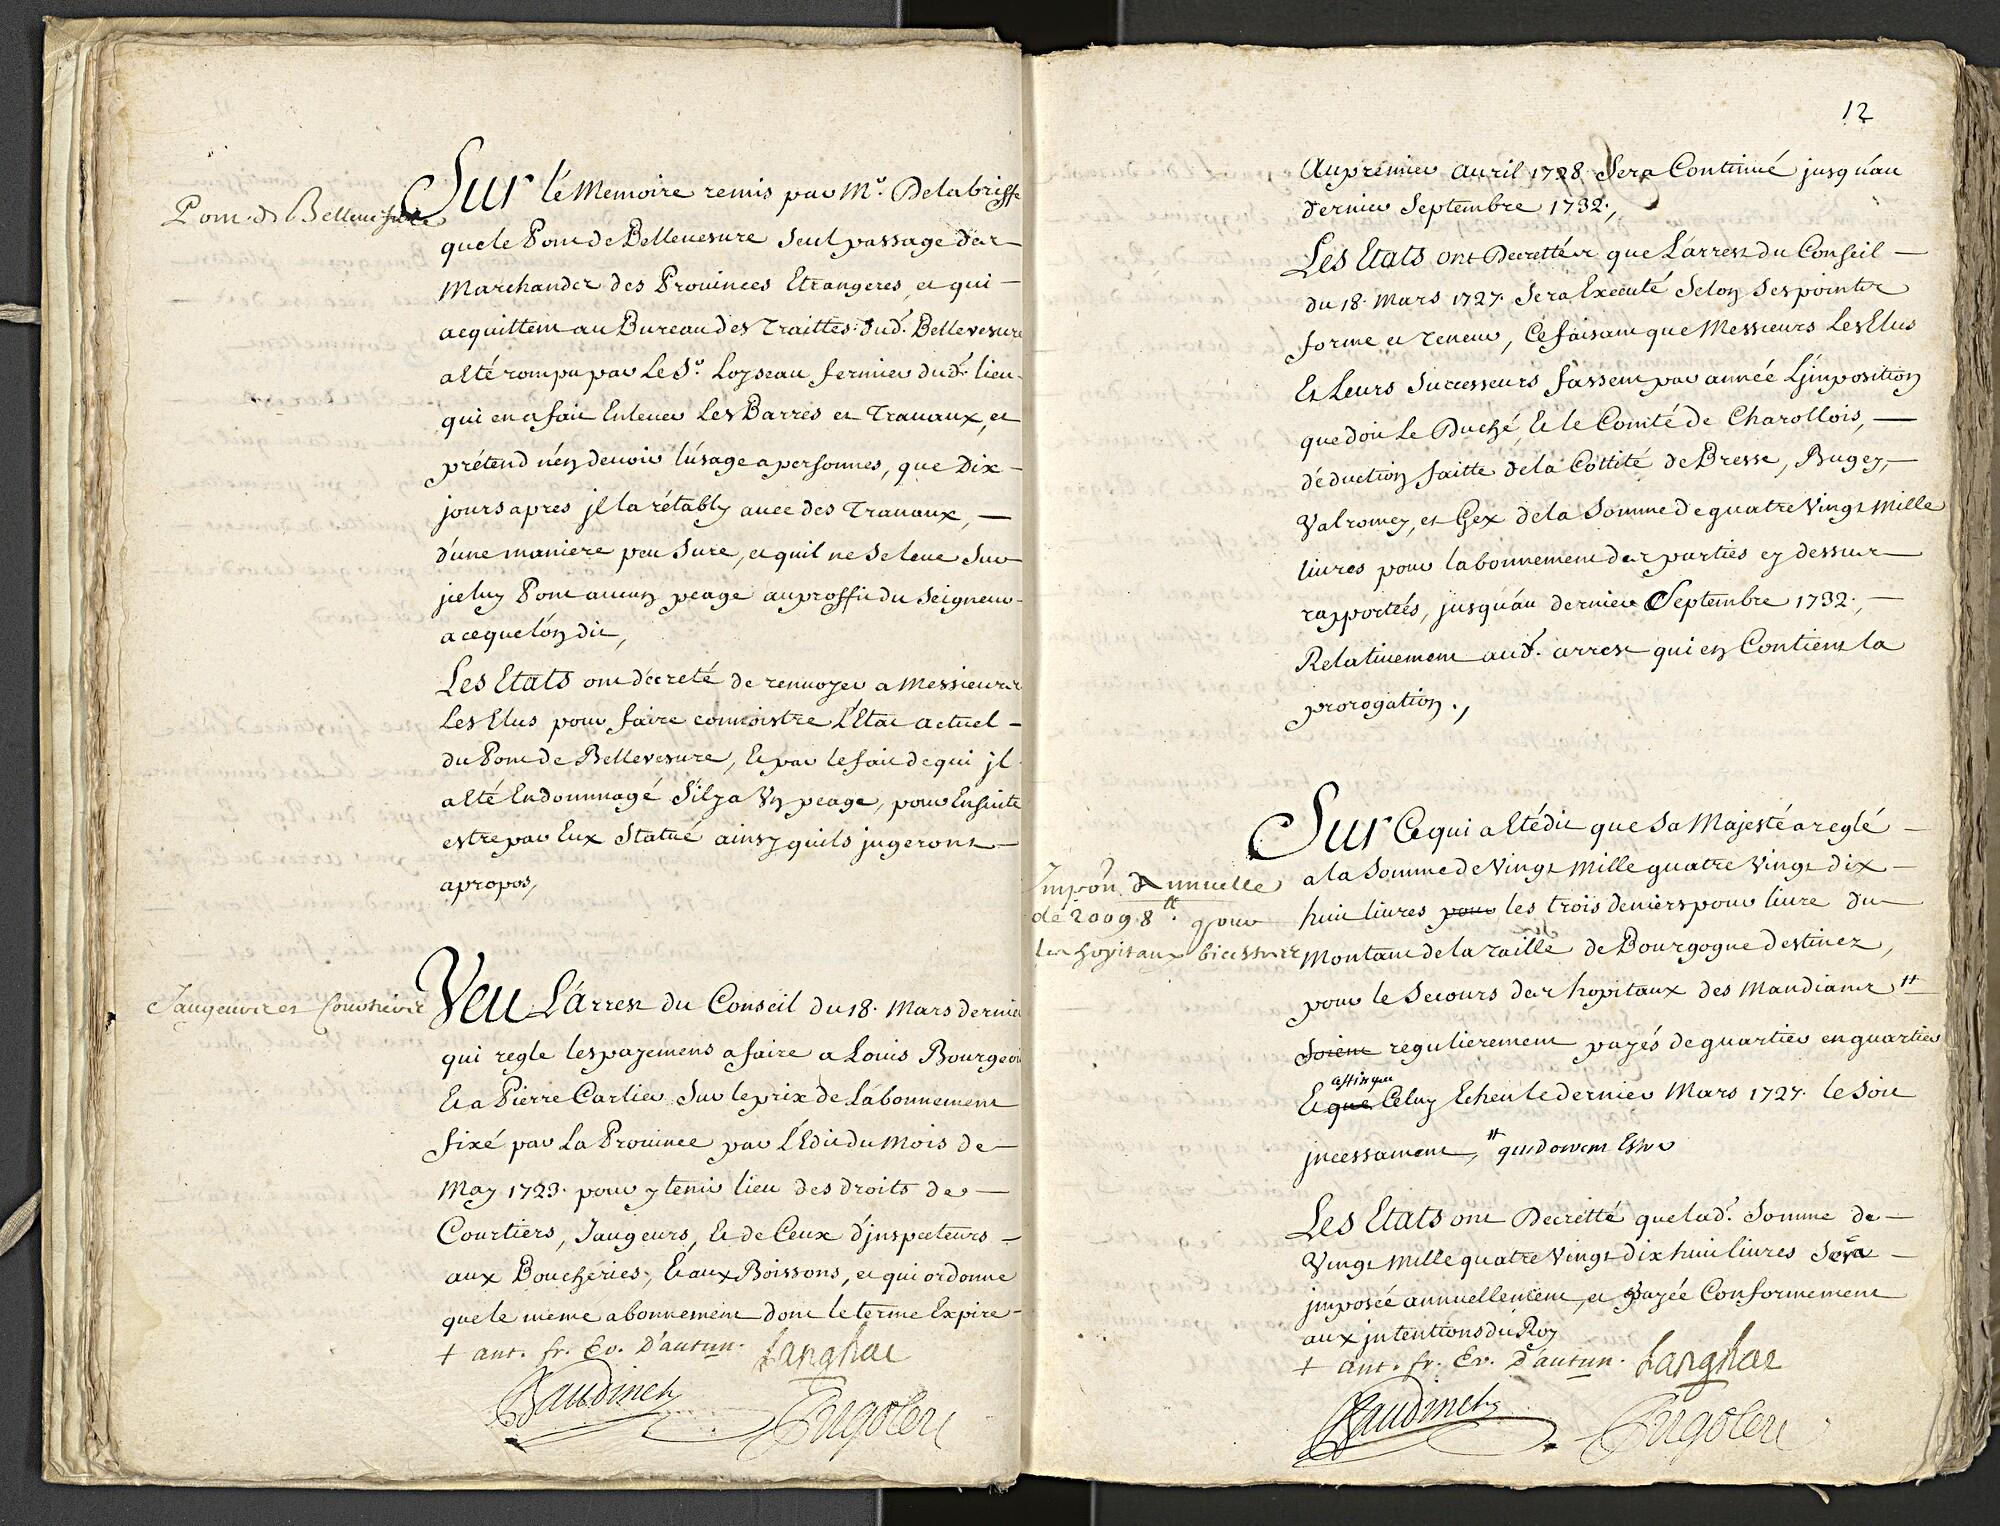 Pont de Bellevesure
Sur le Memoire remis par Mr. Delabriffe
que le Pont de Bellevesure seul passage des
Marchandes des Provinces Etrangeres, et qui
acquittent au Bureau des Traittes dud. Bellevesure
a Eté rompu par Le Sr. Loyseau fermier dud. lieu
qui en a fait Enlever Les Barres et Travaux, et
prétend n'en devoir l'usage a personnes, que Dix
jours apres jl la rétably avec des Travaux,
d'une maniere peu sure, et quil ne se leve sur
jceluy Pont aucun peage au proffit du Seigneur
a ce que l'on dit,
Les Etats ont décreté de renvoyer a Messieurs
Les Elus pour faire connoistre L'Etat actuel
du Pont de Bellevesure, Et par le fait de qui jl
a Eté Endommagé S'il y a Un peage, pour Ensuite
estre par Eux Statué ainsy quils jugeront
apropos,
Jaugeurs et Courtiers
Veu L'arrest du Conseil du 18. Mars dernier
qui regle les payemens a faire a Louis Bourgeois
Et a Pierre Carlier Sur le prix de L'abonnement
fixé par La Province par L'Edit du Mois de
May 1723. pour y tenir lieu des droits de
Courtiers, Jaugeurs, Et de Ceux d'jnspecteurs
aux Boucheries, Et aux Boissons, et qui ordonne
que le meme abonnement dont le terme Expire
+ ant. fr. Ev. D'autun. Langhac
Baudinet
12
Au premier Avril 1728. Sera Continué jusqu'au
dernier Septembre 1732.,
Les Etats ont Decrettés que L'arrest du Conseil
du 18. Mars 1727. Sera Executé Selon Ses points
forme et teneur, Ce faisant que Messieurs Les Elus
Et Leurs Successeurs fassent par année L'jmposition
que doit Le Duché, Et le Comté de Charollois,
déduction faitte de la Cottité de Bresse, Bugey,
Valromey, et Gex de la Somme de quatre Vingt Mille
livres pour l'abonnement des parties cy dessus
rapportées, jusqu'au dernier Septembre 1732.,
Relativement aud. arrest qui en Contient la
prorogation.,
Impon. Annuelle
de 20098tt. pour
les hopitaux
Sur Ce qui a Eté dit que Sa Majesté a reglé
a la Somme de Vingt Mille quatre Vingt dix
huit livres pour les trois deniers pour livre du
Montant de la taille de Bourgogne destinez,
pour le Secours des hopitaux des Mandians #
soient regulierement payés de quartier en quartier
affin que
Et que Celuy Echeu le dernier Mars 1727. le Soit
jncessament, # qui doivent Estre
Les Etats ont Decretté que lad. Somme de
Vingt Mille quatre Vingt dix huit livres Sera
jmposée annuellement, et payée Conformement
aux jntentions du Roy
+ ant. fr. Ev. D'autun. Langhac
Baudinet